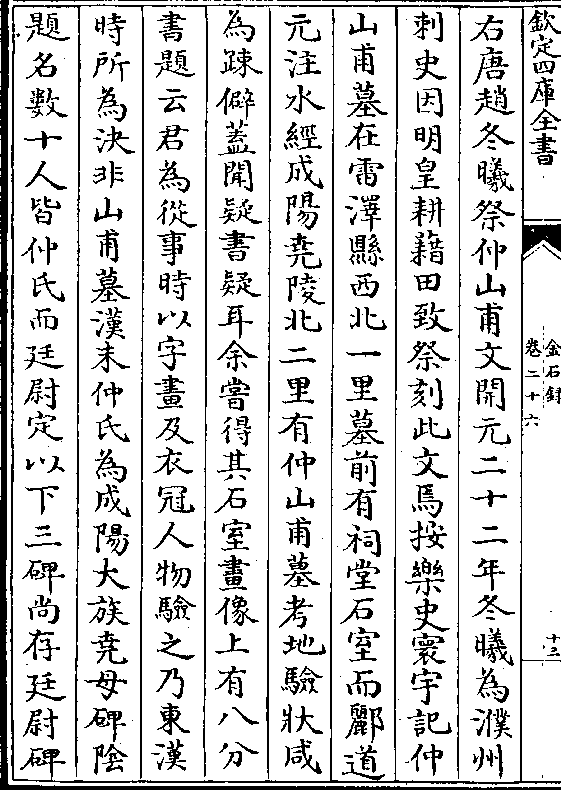 欽定四庫全書
金石録
卷二十六
十三
右唐趙冬曦祭仲山甫文開元二十二年冬曦為濮州
刺史因明皇耕藉田致祭刻此文焉按樂史寰宇記仲
山甫墓在雷澤縣西北一里墓前有祠堂石室而酈道
元注水經成陽堯陵北二里有仲山甫墓考地驗狀咸
為疎僻蓋聞疑書疑耳余嘗得其石室畫像上有八分
書題云君為從事時以字畫及衣冠人物驗之乃東漢
時所為決非山甫墓漢末仲氏為成陽大族堯母碑陰
題名數十人皆仲氏而廷尉定以下三碑尚存廷尉碑